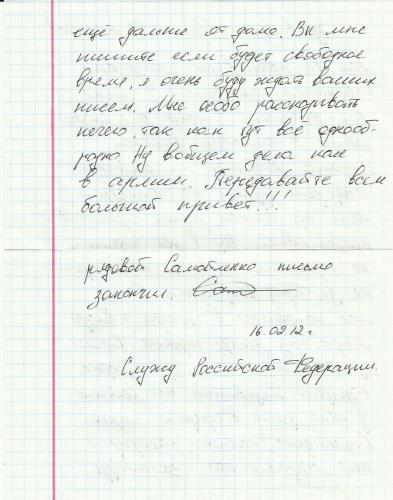 ещё дальше от дома. Вы мне
пишите если будет свободное
время, я очень буду ждать ваших
писем. Мне особо рассказывать
нечего, так как тут всё однооб-
разно. Ну вобщем дела как
в армии. Передавайте всем
большой привет!!!
рядовой Самойленко письмо
закончил.
16.02.12 г.
Служу Российской Федерации.